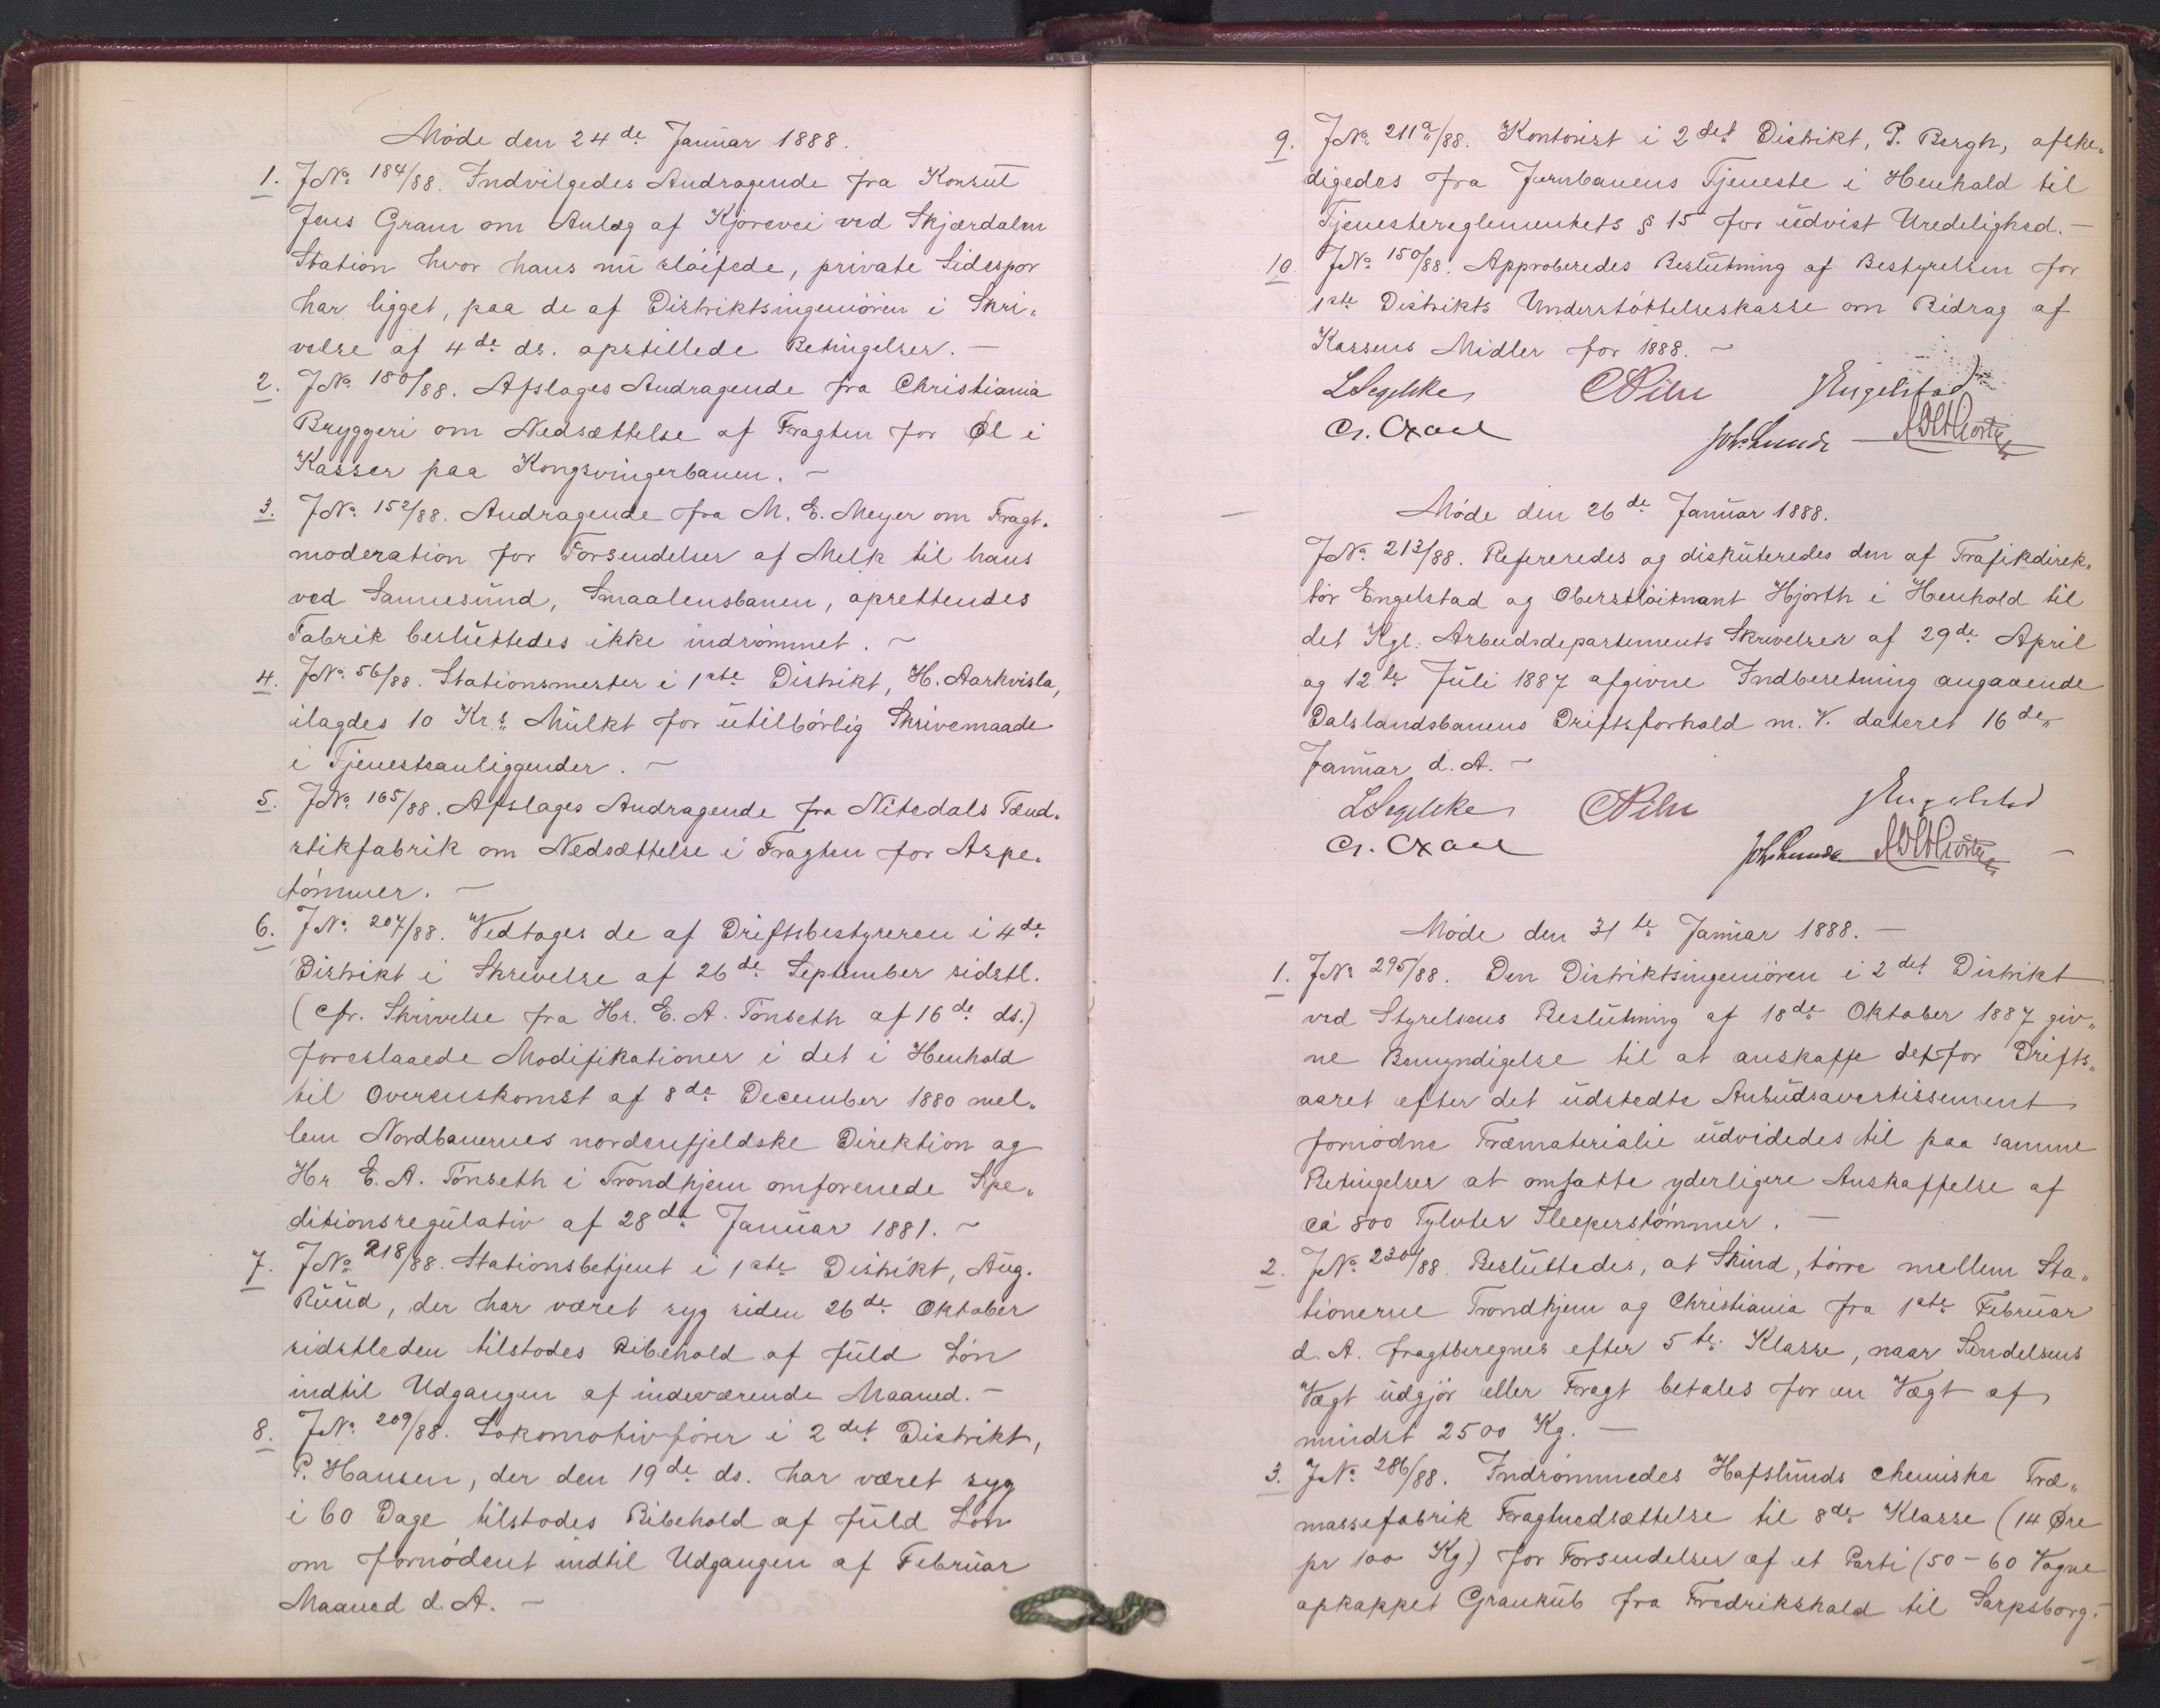 Møde den 24de Januar 1888.
1. JNo 184/88. Indvilgedes Andragende fra Konsul
Jens Gram om Anlæg af Kjørevei ved Skjærdalen
Station hvor hans nu sløifede, private Sidespor
har ligget, paa de af Distriktsingeniøren i Skri-
velse af 4de ds. opstillede Betingelser. —
2. JNo 180/88. Afslages Andragende fra Christiania
Bryggeri om Nedsættelse af Fragten for Øl i
Kasser paa Kongsvingerbanen. —
3. JNo 152/88. Andragende fra M. E. Meyer om Fragt-
moderation for Forsendelser af Melk til hans
ved Sannesund, Smaalensbanen, oprettendes
Fabrik besluttedes ikke indrømmet. —
4. JNo 56/88. Stationsmester i 1ste Distrikt, H. Aarkvisla,
ilagdes 10 Krs. Mulkt for utilbørlig Skrivemaade
i Tjenestsanliggender. —
5. JNo 165/88. Afslages Andragende fra Nitedals Tænd-
stikfabrik om Nedsættelse i Fragten for Aspe-
tømmer. —
6. JNo 207/88. Vedtages de af Driftsbestyreren i 4de
Distrikt i Skrivelse af 26de September sidstl.
(cfr. Skrivelse fra Hr. E. A. Tønseth af 16de ds.)
foreslaaede Modifikationer i det i Henhold
til Overenskomst af 8de December 1880 mel-
lem Nordbanernes nordenfjeldske Direktion og
Hr. E. A. Tønseth i Trondhjem omforenede Spe-
ditionsregulativ af 28de Januar 1881. —
7. JNo 218/88. Stationsbetjent i 1ste Distrikt, Aug.
Ruud, der har været syg siden 26de Oktober
sidstleden tilstodes Bibehold af fuld Løn
indtil Udgangen af indeværende Maaned. —
8. JNo 209/88. Lokomotivfører i 2det Distrikt,
P. Hansen, der den 19de ds. har været syg
i 60 Dage tilstodes Bibehold af fuld Løn
om fornødent indtil Udgangen af Februar
Maaned d. A. —
9. JNo 211a/88. Kontorist i 2det Distrikt, P. Bergh, afske-
digedes fra Jernbanens Tjeneste i Henhold til
Tjenestereglementets § 15 for udvist Uredelighed. —
10. JNo 150/88. Approberedes Beslutning af Bestyrelsen for
1ste Distrikts Understøttelseskasse om Bidrag af
Kassens Midler for 1888. —
LSegelcke CPihl JEngelstad
Cr. Oxaal Joh. Lunde AHHjorth
Møde den 26de Januar 1888.
JNo 213/88. Refereredes og diskuteredes den af Trafikdirek-
tør Engelstad og Oberstløitnant Hjorth i Henhold til
det Kgl. Arbeidsdepartements Skrivelser af 29de April
og 12te Juli 1887 afgivne Indberetning angaaende
Dalslandsbanens Driftsforhold m. V. dateret 16de
Januar d. A. —
LSegelcke CPihl JEngelstad
Cr. Oxaal Joh Lunde AHHjorth —
Møde den 31te Januar 1888. —
1. JNo 295/88. Den Distriktsingeniøren i 2det Distrikt
ved Styrelsens Beslutning af 18de Oktober 1887 giv-
ne Bemyndigelse til at anskaffe det for Drifts-
aaret efter det udstedte Anbudsavertissement
fornødne Træmateriale udvidedes til paa samme
Betingelser at omfatte yderligere Anskaffelse af
ca 800 Tylvter Sleeperstømmer. —
2. JNo 230/88. Besluttedes, at Skind, tørre mellem Sta-
tionerne Trondhjem og Christiania fra 1ste Februar
d. A. fragtberegnes efter 5te Klasse, naar Sendelsens
Vægt udgjør eller Fragt betales for en Vægt af
mindst 2500 Kg. —
3. JNo 286/88. Indrømmedes Hafslunds chemiske Træ-
massefabrik Fragtnedsættelse til 8de Klasse (14 Øre
pr 100 Kg) for Forsendelser af et Parti (50-60 Vogne
opkappet Grankub fra Fredrikshald til Sarpsborg. —